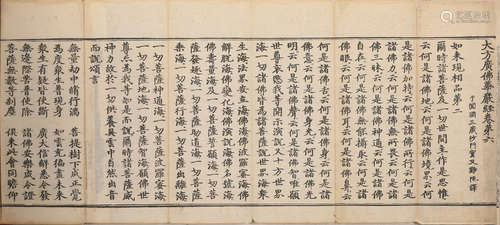 大方廣佛華嚴經卷第六
于闐國三藏沙門實叉難陀譯
如來現相品第二
爾時諸菩薩及一切世間主作是思惟
云何是諸佛地云何是諸佛境界云何
是諸佛加持云何是諸佛所行云何是
諸佛力云何是諸佛無所畏云何是諸
佛三昧云何是諸佛神通云何是諸佛
自在云何是諸佛無能攝取云何是諸
佛眼云何是諸佛耳云何是諸佛鼻云
何是諸佛舌云何是諸佛身云何是諸
佛意云何是諸佛身光云何是諸佛光
明云何是諸佛聲云何是諸佛智唯願
世尊哀愍我等開示演說又十方世界
海一切諸佛皆為諸菩薩說世界海眾
生海法界安立海佛海佛波羅蜜海佛
解脫海佛變化海佛演說海佛名號海
佛壽量海及一切菩薩誓願海一切菩
薩發趣海一切菩薩助道海一切菩薩
乘海一切菩薩行海一切菩薩出離海
一切菩薩神通海一切菩薩波羅蜜海
一切菩薩地海一切菩薩智海願佛世
尊亦為我等如是而說爾時諸菩薩威
神力故於一切供養具雲中自然出音
而說頌言
無量劫中修行滿　菩提樹下成正覺
為度眾生普現身　如雲充遍盡未來
眾生有疑皆使斷　廣大信解悉令發
無邊際苦普使除　諸佛安樂咸令證
菩薩無數等剎塵　俱來此會同瞻仰